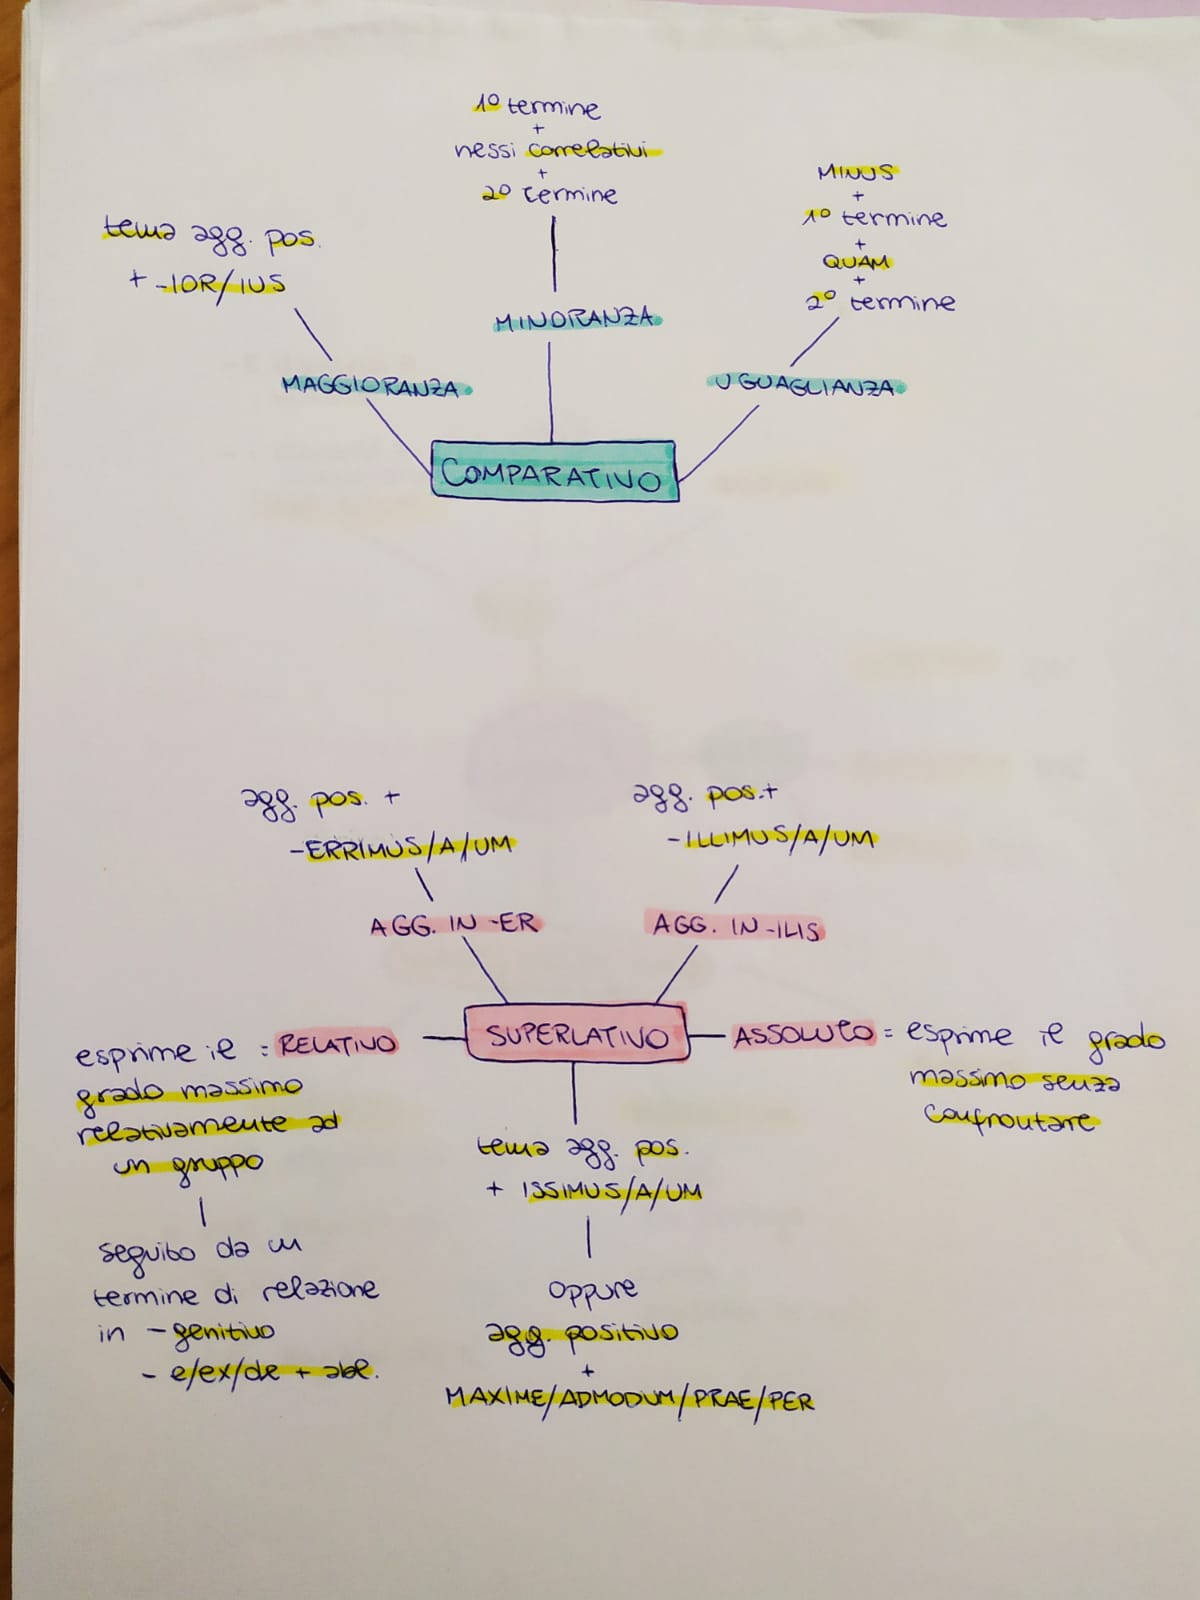 1º termine
+
nessi correlativi
+
2º termine
MINORANZA
tema agg. pos.
+ -IOR/IUS
MAGGIORANZA
MINUS
+
1º termine
+
QUAM
+
2º termine
UGUAGLIANZA
COMPARATIVO
agg. pos. +
-ERRIMUS/A/UM
AGG. IN -ER
agg. pos.+
-ILLIMUS/A/UM
AGG. IN -ILIS
SUPERLATIVO
esprime il = RELATIVO
grado massimo
relativamente ad
un gruppo
seguito da un
termine di relazione
in - genitivo
- e/ex/de + abl.
ASSOLUTO = esprime il grado
massimo senza
confrontare
tema agg. pos.
+ ISSIMUS/A/UM
oppure
agg. positivo
+
MAXIME/ADMODUM/PRAE/PER